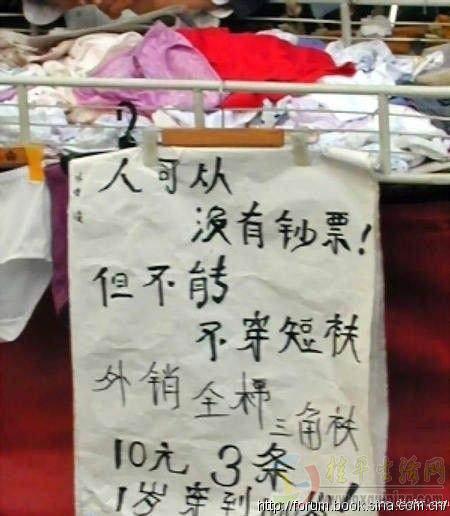 人可从
没有钞票!
但不能
不穿短衭
外销全棉
三角衭
10元3条
1岁穿到
http://forum.book.sina.com.cn/